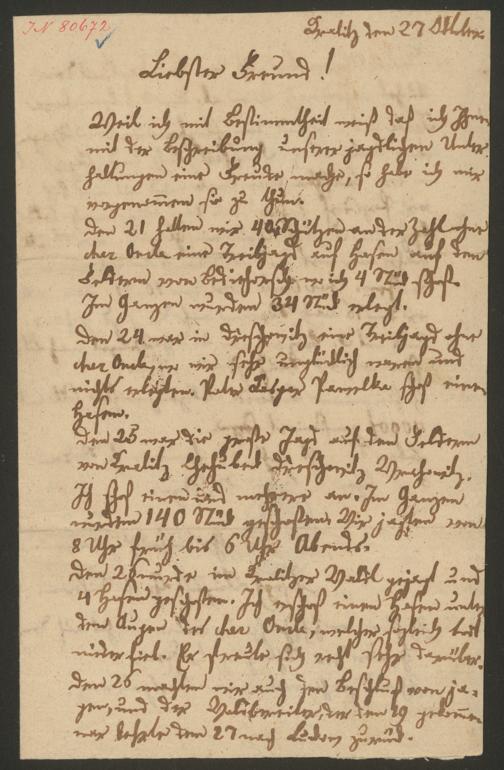 JN 80672
Kralitz den 27 Oktober
Liebster Freund!
Weil ich mit Bestimmtheit weiß daß ich Ihnen
mit der Beschreibung unserer jagdlichen Unter-
haltungen eine Freude mache, so habe ich mir
vorgenommen sie zu thun.
Den 21 hatten wir 40 Schützen an der Zahl ohne
eine Treibjagd auf Hasen auf den
Feldern von wo ich 4 Stück schoß.
Im Ganzen wurden 34 Stück erlegt.
Den 24 war in eine Treibjagd ohne
wo wir sehr unglücklich waren und
nichts erlegten. Pater Pawelka schoß einen
Hasen.
Den 25 war die große Jagd auf den Feldern
von Kralitz
Ich schoß einen und mehrere an. Im Ganzen
wurden 140 Stück geschossen. Wir jagten von
8 Uhr früh bis 6 Uhr Abends.
Den 26 wurde im Kralitzer Waldl gejagt und
4 Hasen geschossen. Ich erschoß einen Hasen unter
den Augen des welcher sogleich todt
niederfiel. Er freute sich recht sehr darüber.
Den 26 machten wir auch den Beschluß von ja-
gen, und der der den 19 gekommen
war kehrte den 27 nach zurück.